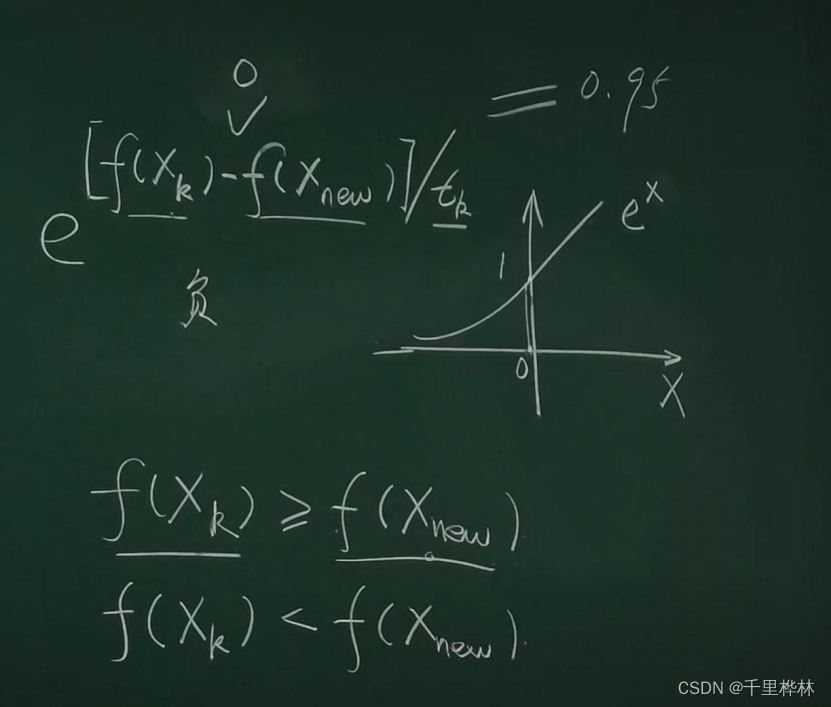 0
= 0.95
e^{[f(x_k)-f(x_{new})]/t_k}
e^x
负
1
0
X
f(x_k) ≥ f(x_{new})
f(x_k) < f(x_{new})
CSDN @千里桦林